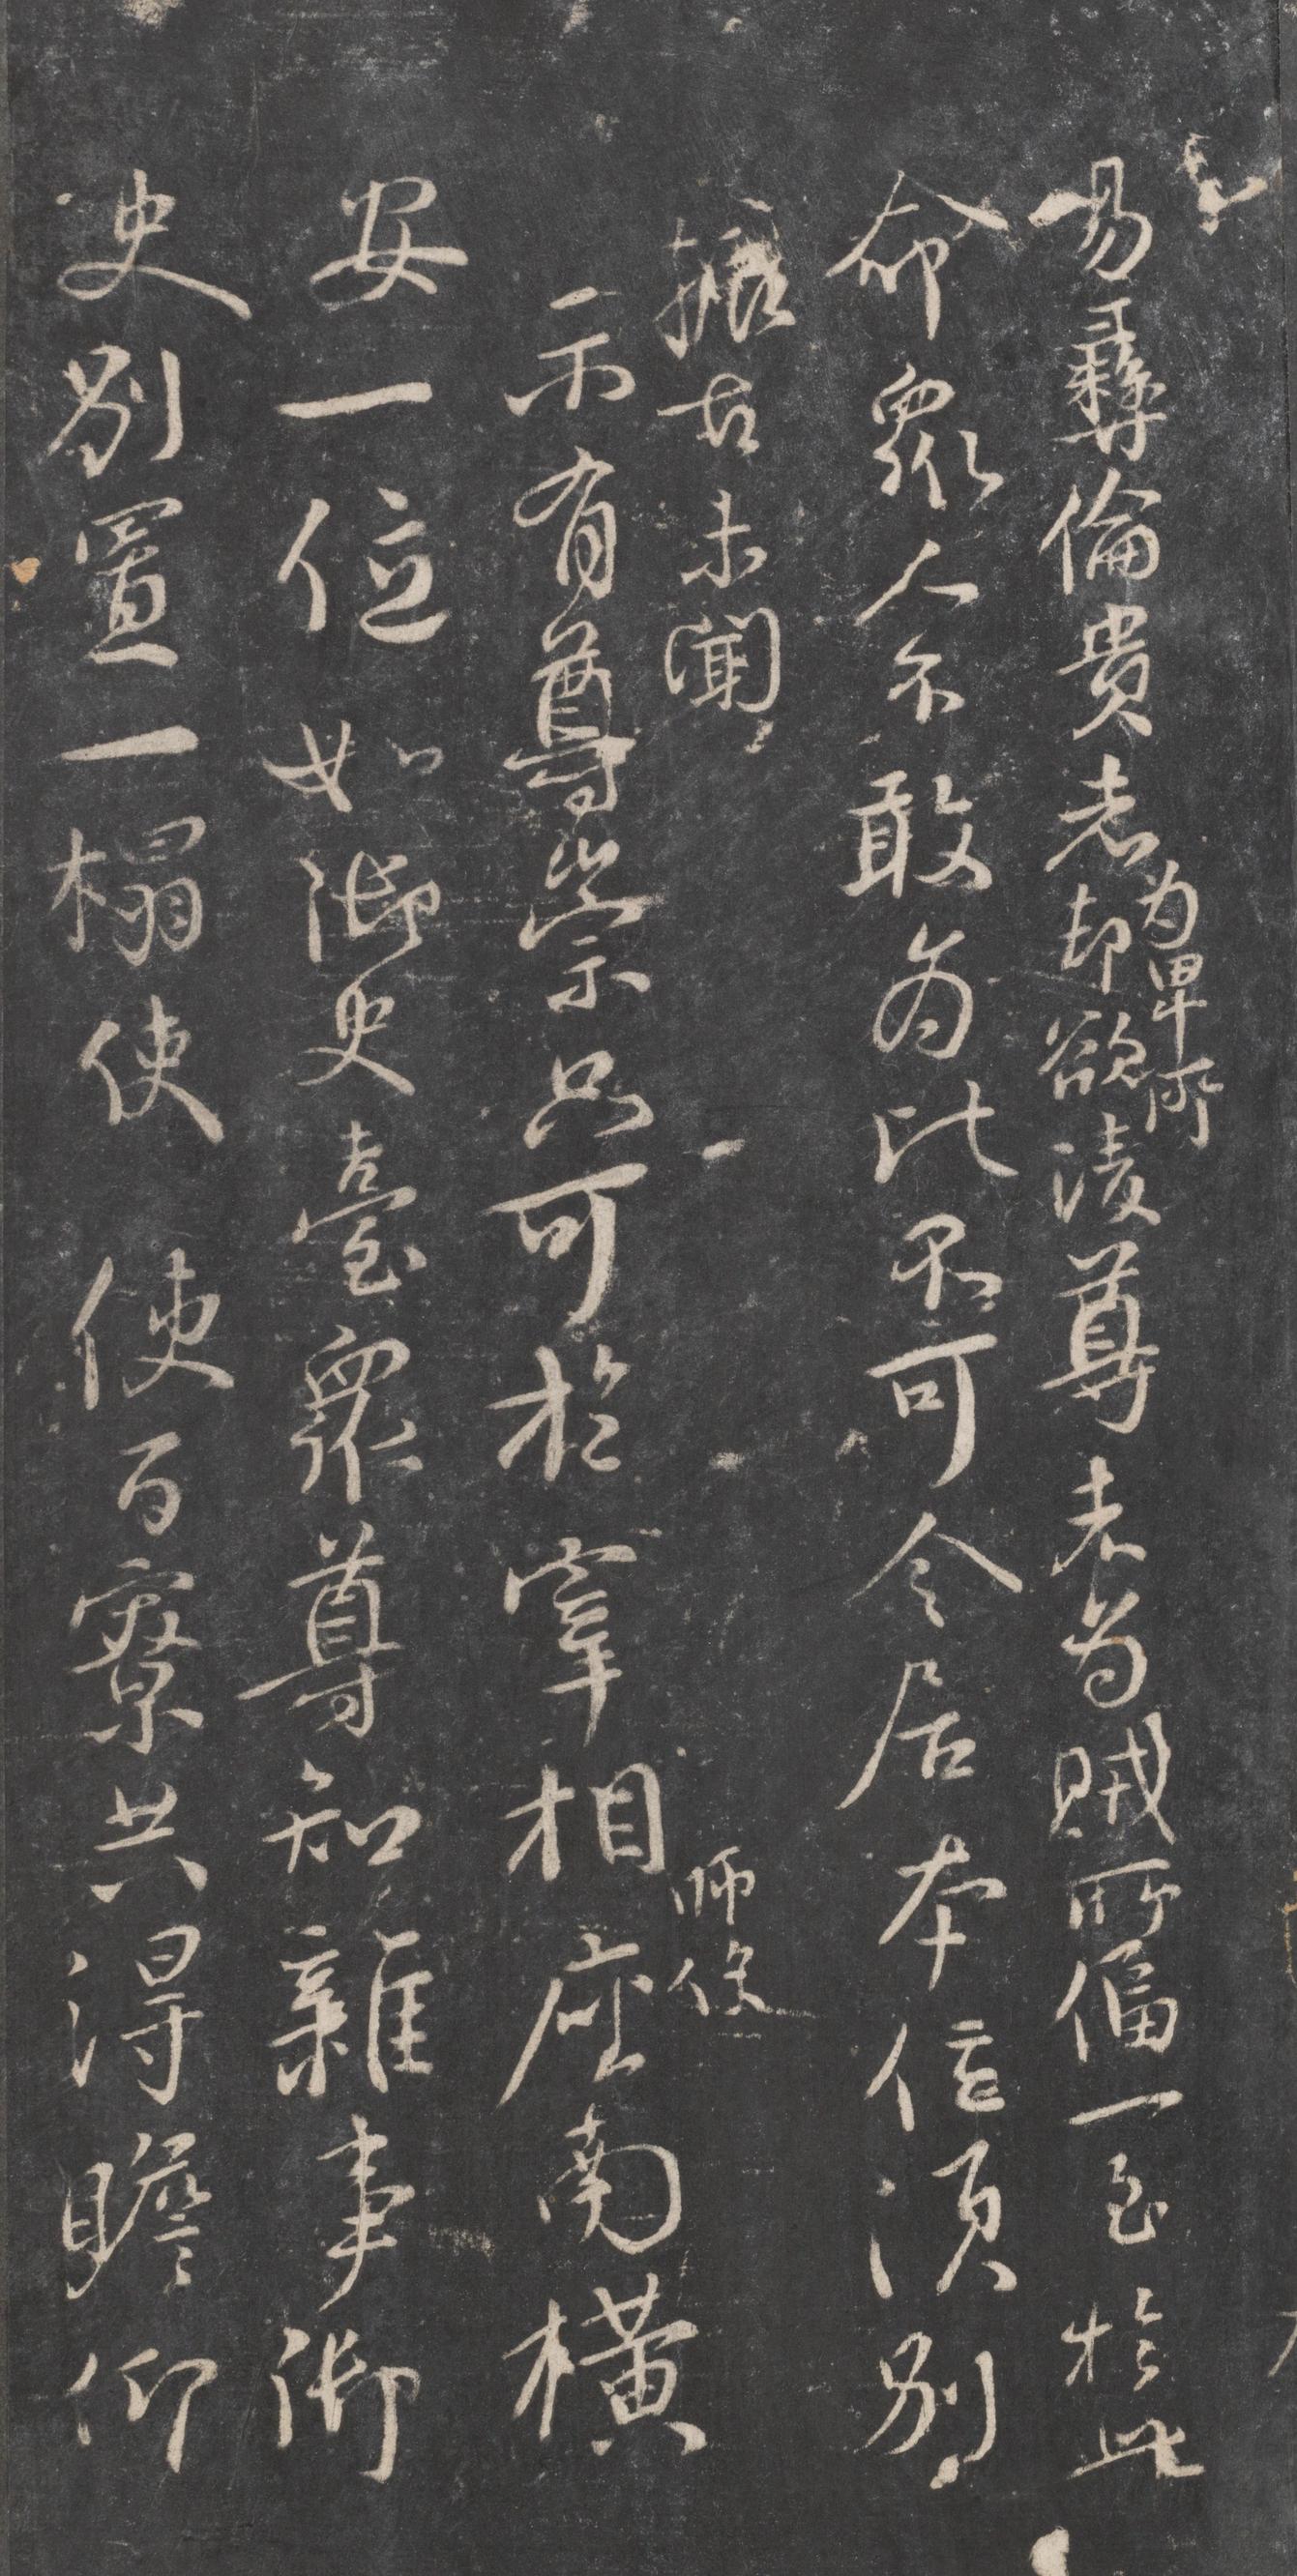 易彝倫貴者却欲凌尊者為賊所偪一至於此
为卑所
命眾人不敢為比不可令居本位須別
振古未聞
師保
示有尊崇只可於宰相座南橫
安一位如御史臺眾尊知雜事御
史別置一榻使使百寮共得瞻仰